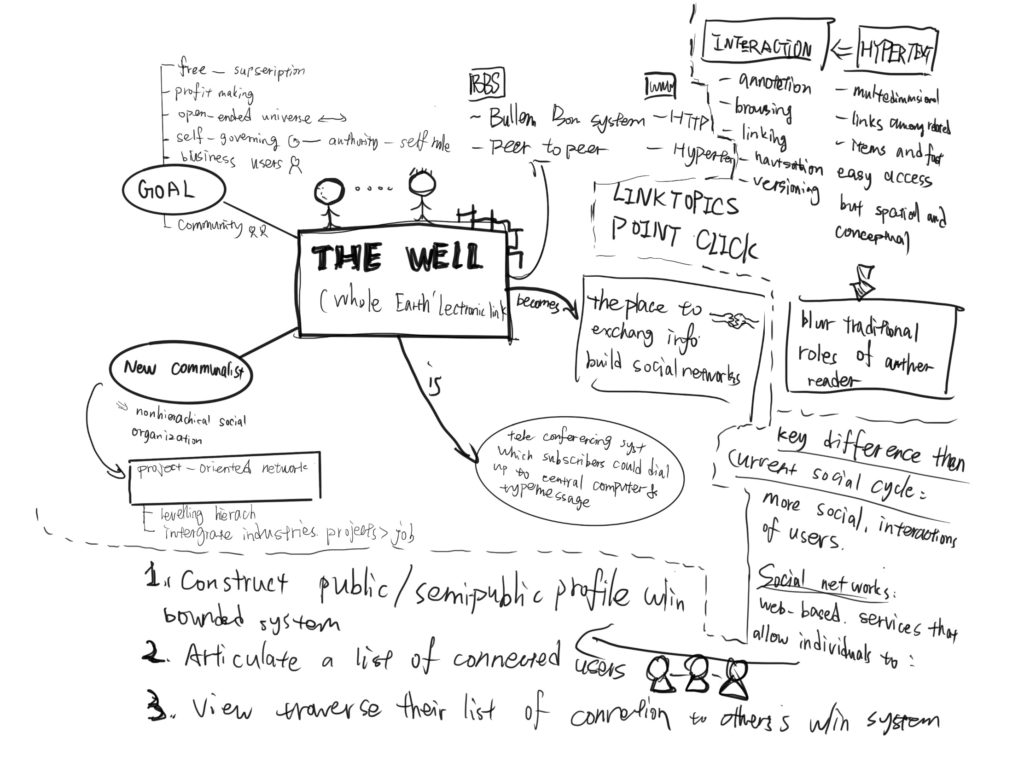 free – supscription
profit making
open-ended universe
self-governing – authority – self rule
business users
GOAL
community
THE WELL
(Whole Earth 'Lectronic link
BBS
- Bullem Bon system
- Peer to peer
www
- HTTP
- Hyperten
INTERACTION
- annotation
- browsing
- linking
- navtsation
- versioning
HYPERTEXT
- multedimmsional
- links among related
- items and fast
easy access
but spatial and
conceptual
LINKTOPICS
POINT CLICK
becomes
the place to
exchang info.
build social networks
blur traditional
roles of auther
reader
New communalist
nonhierachical social
organization
project-oriented network
levelling hierach
intergrate industries projects > job
is
tele conferencing syst
which subscribers could dial
up to central computer &
typemessage
key difference than
current social cycle:
more social, interactions
of users.
Social networks:
web-based services that
allow individuals to:
1. Construct public/semipublic profile w/in
bounded system
2. Articulate a list of connected users
3. View traverse their list of connetion to others's w/in system